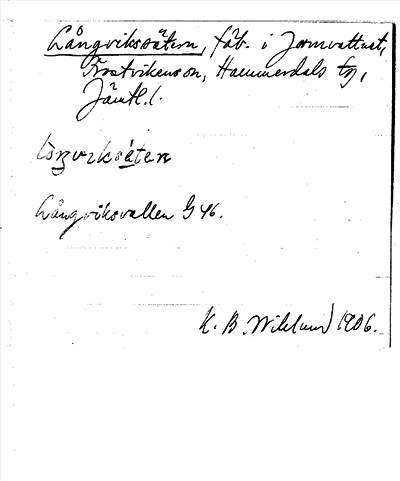 Långvikssätern, fäb. i Jormvattnet,
Frostvikens sn, Hammerdals tg,
Jämtl. l.
lòŋvɩksä́ten
Långviksvallen G 46.
K. B. Wiklund 1906.